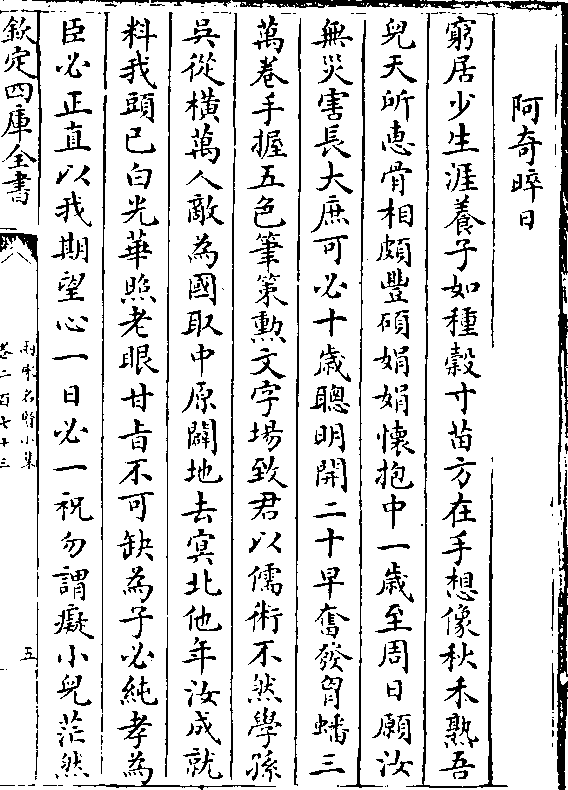 阿奇晬日
窮居少生涯養子如種穀寸苗方在手想像秋禾熟吾
兒天所惠骨相頗豐碩娟娟懷抱中一歳至周日願汝
無災害長大庶可必十歳聰明開二十早奮發胷蟠三
萬巻手握五色筆策勲文字場致君以儒術不然學孫
吳從横萬人敵為國取中原闢地去㝠北他年汝成就
料我頭已白光華照老眼甘㫖不可缺為子必純孝為
臣必正直以我期望心一日必一祝勿謂癡小兒茫然
欽定四庫全書
兩宋名賢小集
卷二百七十三
五